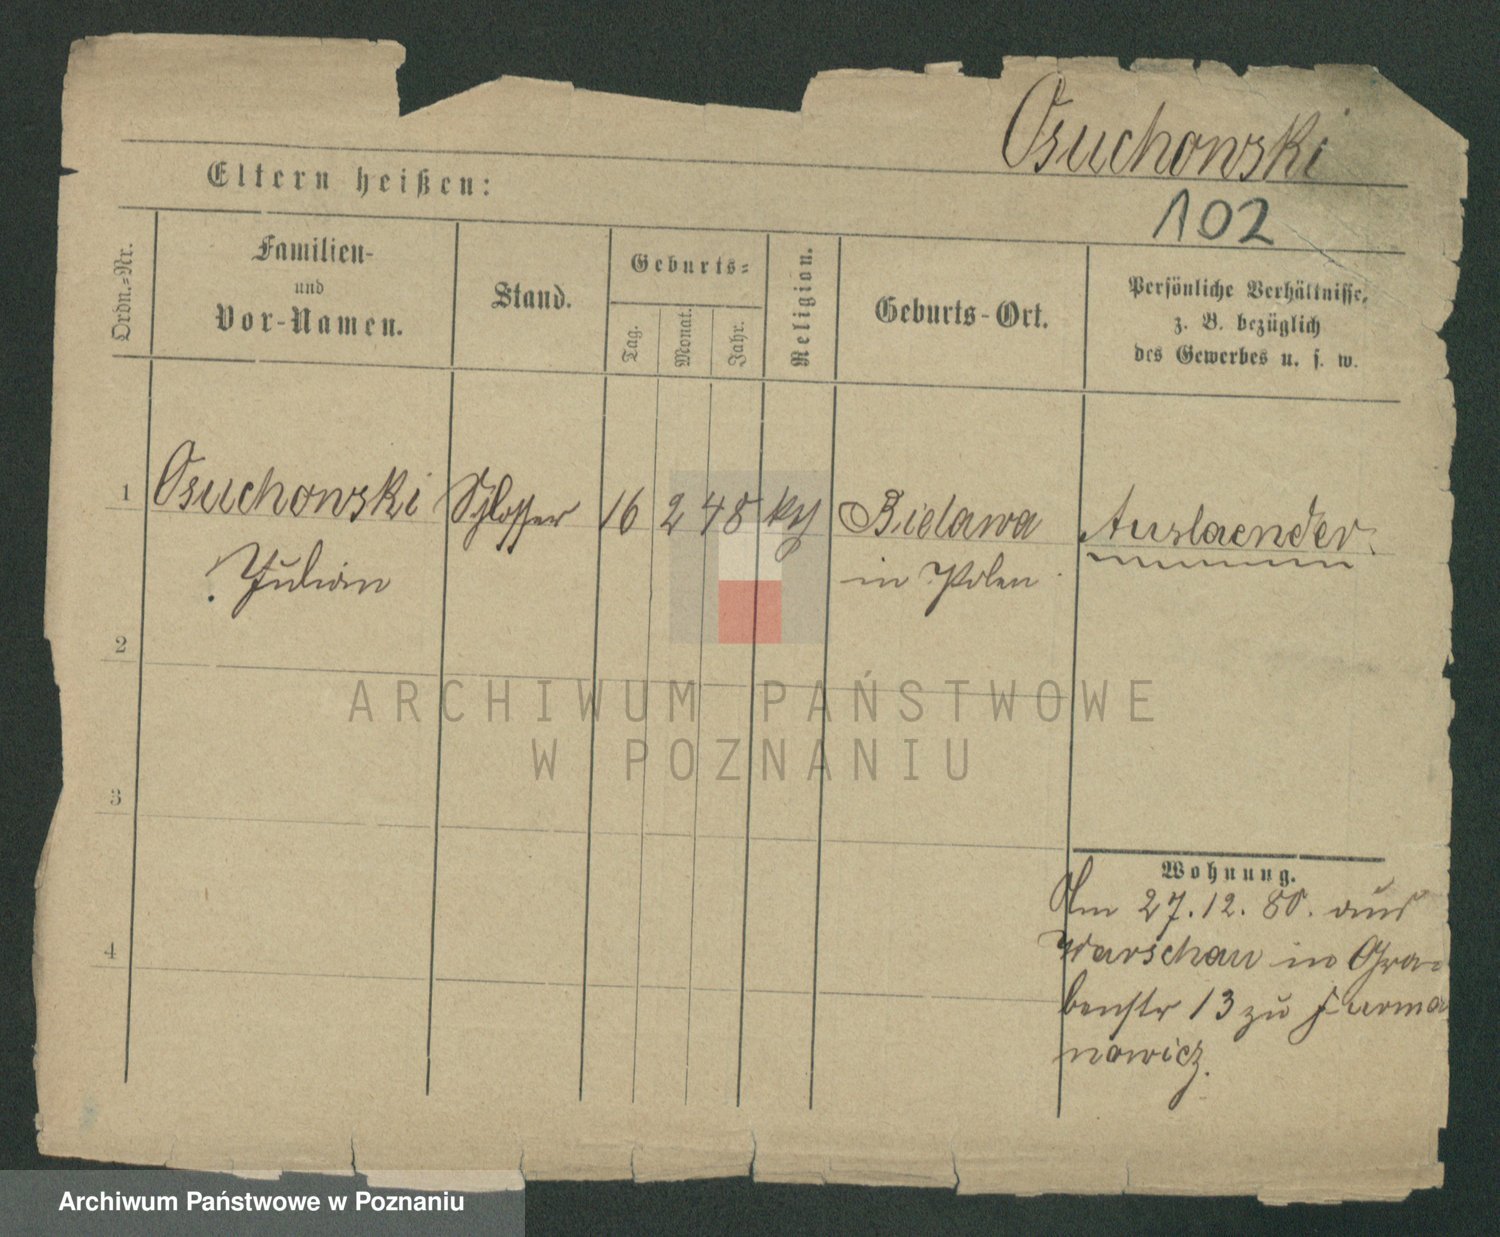 Osuchowski
Eltern heißen:
102
Ordn.-Nr.
Familien-
und
Vor-Namen.
Stand.
Geburts-
Tag.
Monat.
Jahr.
Religion.
Geburts-Ort.
Persönliche Verhältnisse,
z. B. bezüglich
des Gewerbes u. s. w.
1 Osuchowski Schlosser 16 2 48 kth Bielawa Auslaender.
Julian in Polen
2
3
4
Wohnung.
Am 27.12.80. aus
Warschau in Gra-
benstr 13 zu Furma
nowicz.
ARCHIWUM PAŃSTWOWE
W POZNANIU
Archiwum Państwowe w Poznaniu